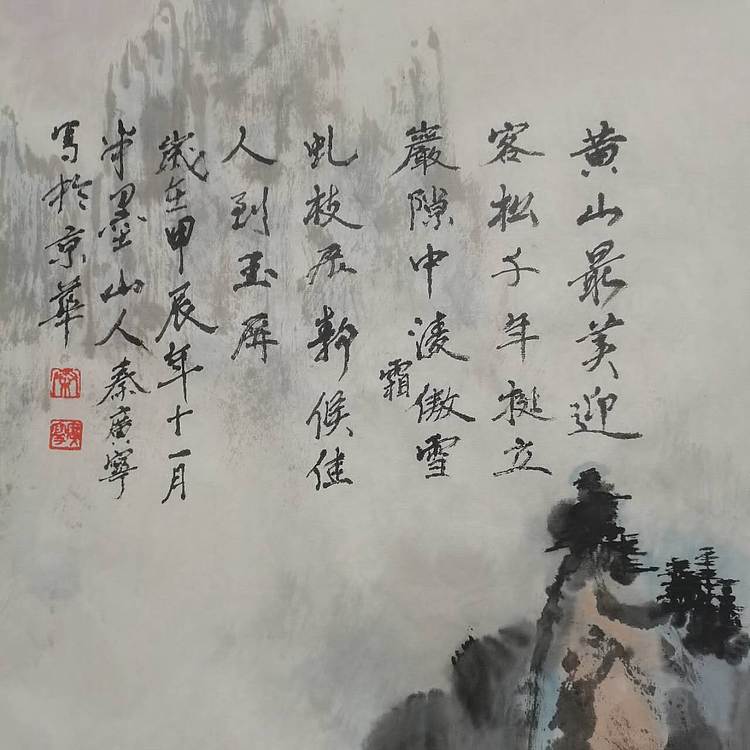 黄山最美迎
客松千年挺立
巖隙中淩霜傲雪
虬枝展靜候佳
人到玉屏
歲在甲辰年十一月
半墨山人秦廣寧
写於京華